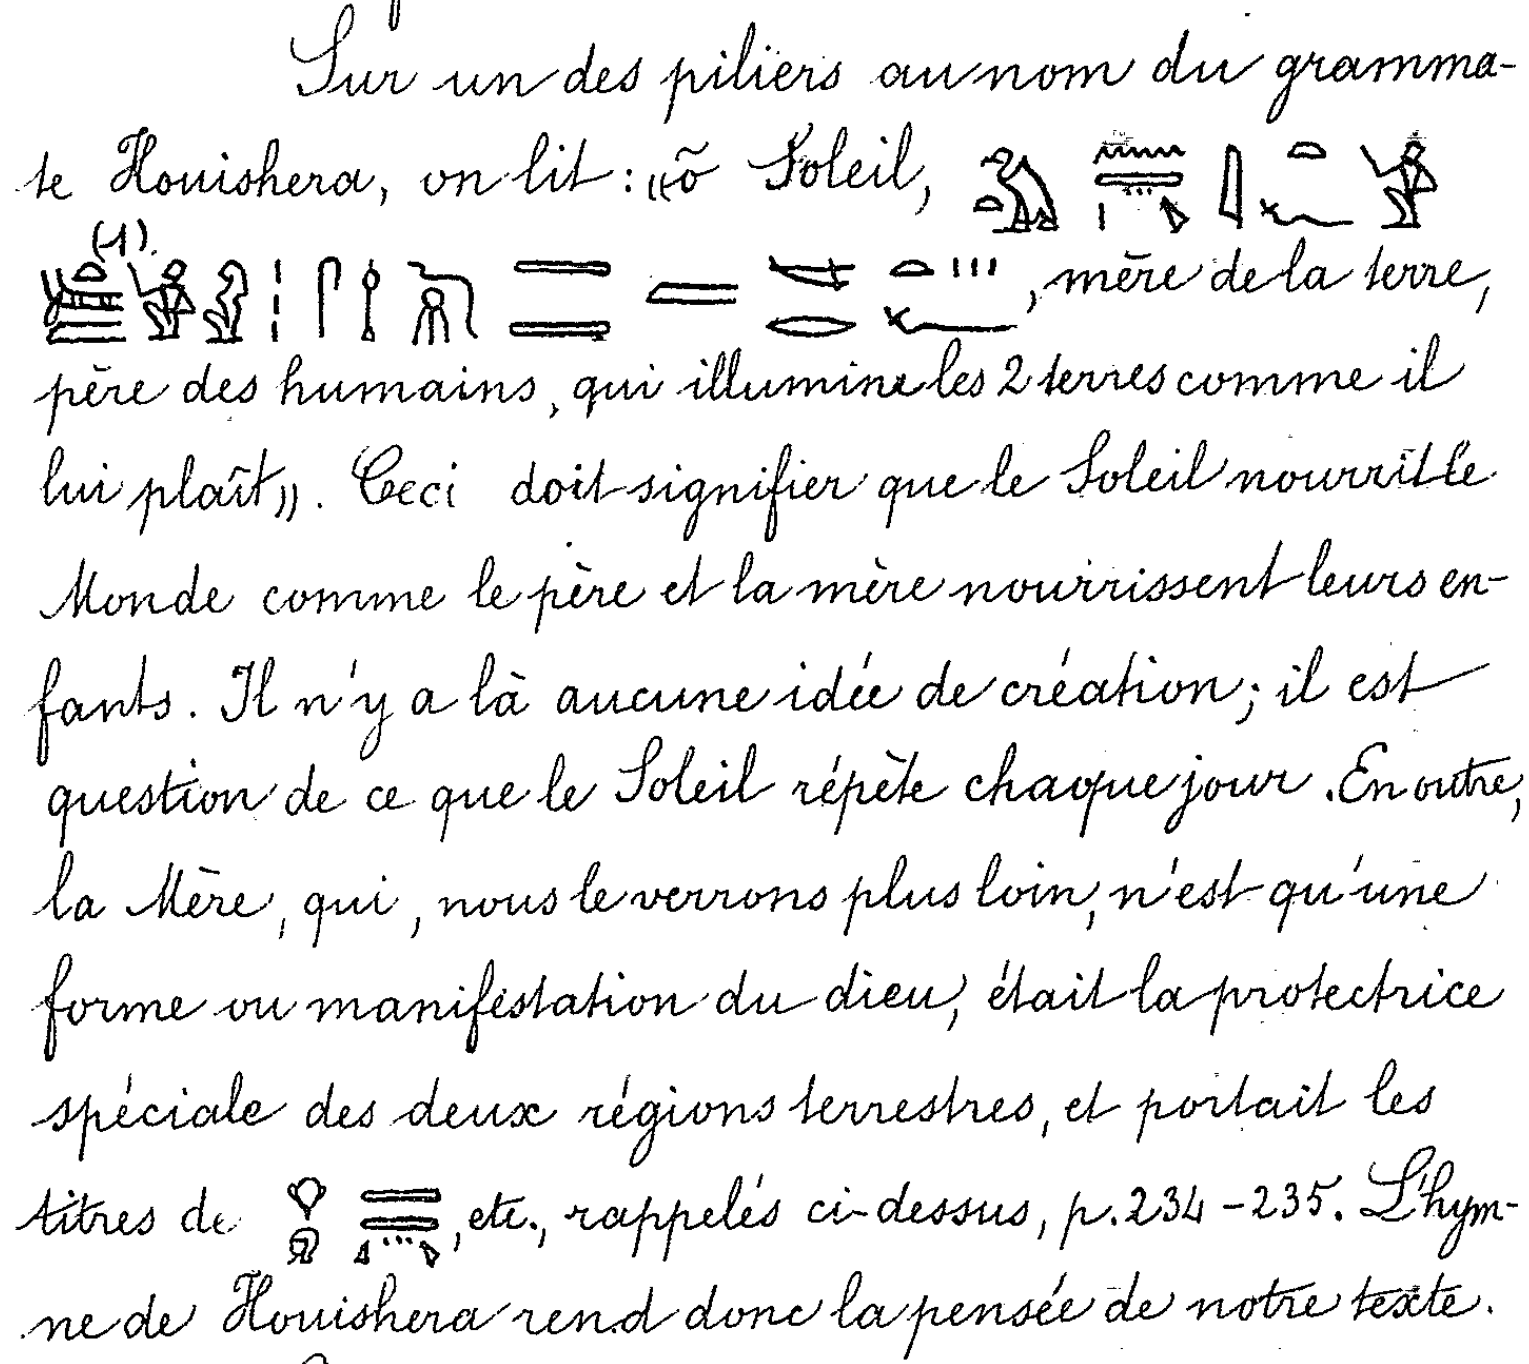 Sur un des piliers au nom du gramma-
te Houishera, on lit : «ô Soleil,
(1). , mère de la terre,
père des humains, qui illumine les 2 terres comme il
lui plaît». Ceci doit signifier que le Soleil nourrit le
Monde comme le père et la mère nourrissent leurs en-
fants. Il n'y a là aucune idée de création; il est
question de ce que le Soleil répète chaque jour. En outre,
la Mère, qui, nous le verrons plus loin, n'est qu'une
forme ou manifestation du dieu, était la protectrice
spéciale des deux régions terrestres, et portait les
titres de , etc., rappelés ci-dessus, p. 234-235. L'hym-
ne de Houishera rend donc la pensée de notre texte.